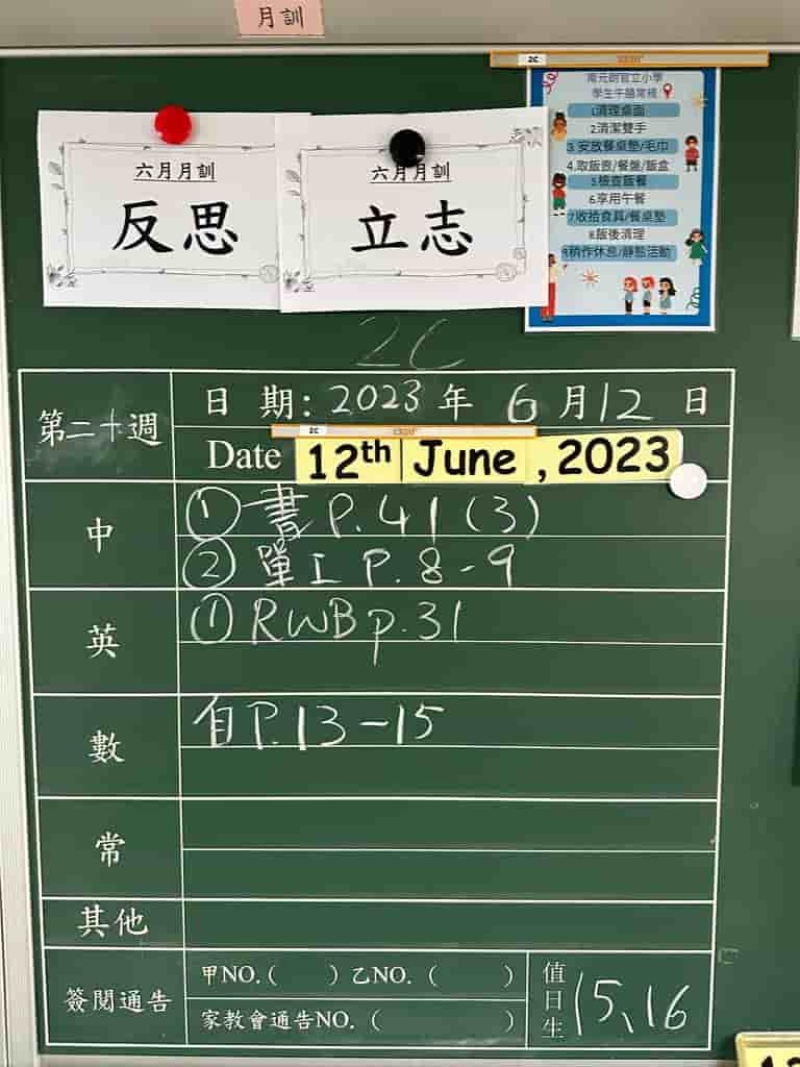 月訓
六月月訓
反思
六月月訓
立志
2C
南元朗官立小學
學生午膳常規
1清理桌面
2清潔雙手
3 安放餐桌墊/毛巾
4.取飯壺/餐盤/飯盒
5檢查飯餐
6享用午餐
7收拾食具/餐桌墊
8飯後清理
9稍作休息/靜態活動
2C
第二十週
日 期: 2023 年 6 月 12 日
2C
Date 12th June , 2023
中
① 書 P. 41 (3)
② 單工 P. 8 - 9
英
① RWB p. 31
數
自P. 13 - 15
常
其他
簽閱通告
甲NO. ( ) 乙NO. ( )
家教會通告NO. ( )
值日生
15、16